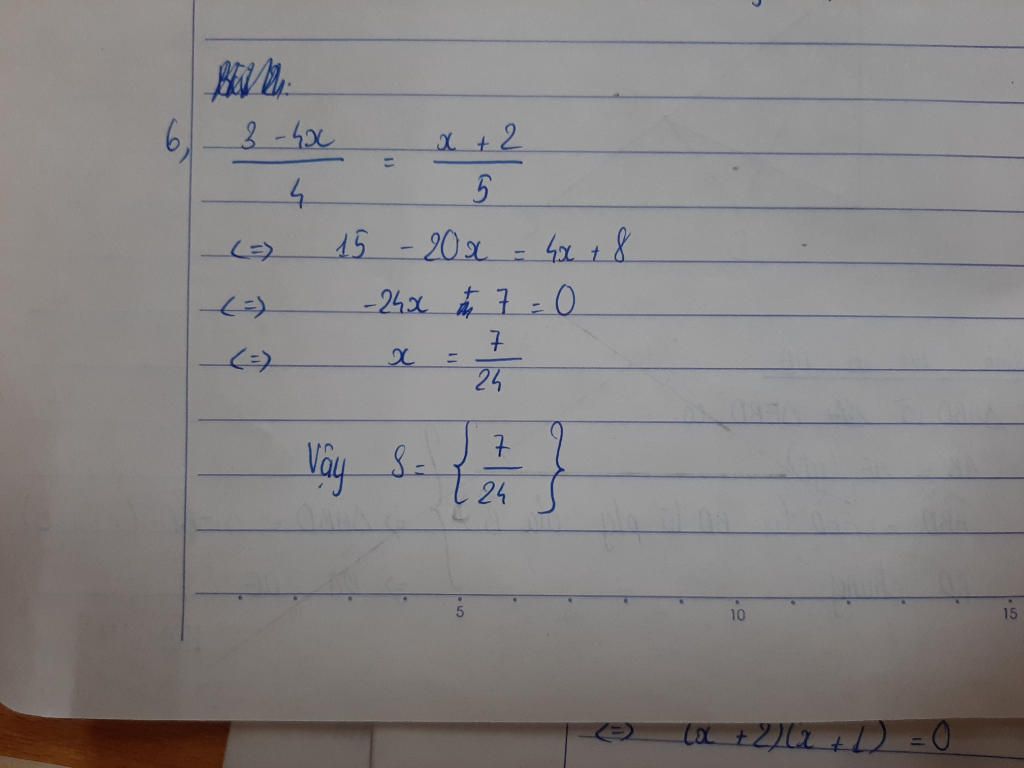 6, 3 - 4x / 4 = x + 2 / 5
<=> 15 - 20x = 4x + 8
<=> -24x + 7 = 0
<=> x = 7 / 24
Vậy S = { 7 / 24 }
5 10 15
<=> (x + 2)(x + 1) = 0